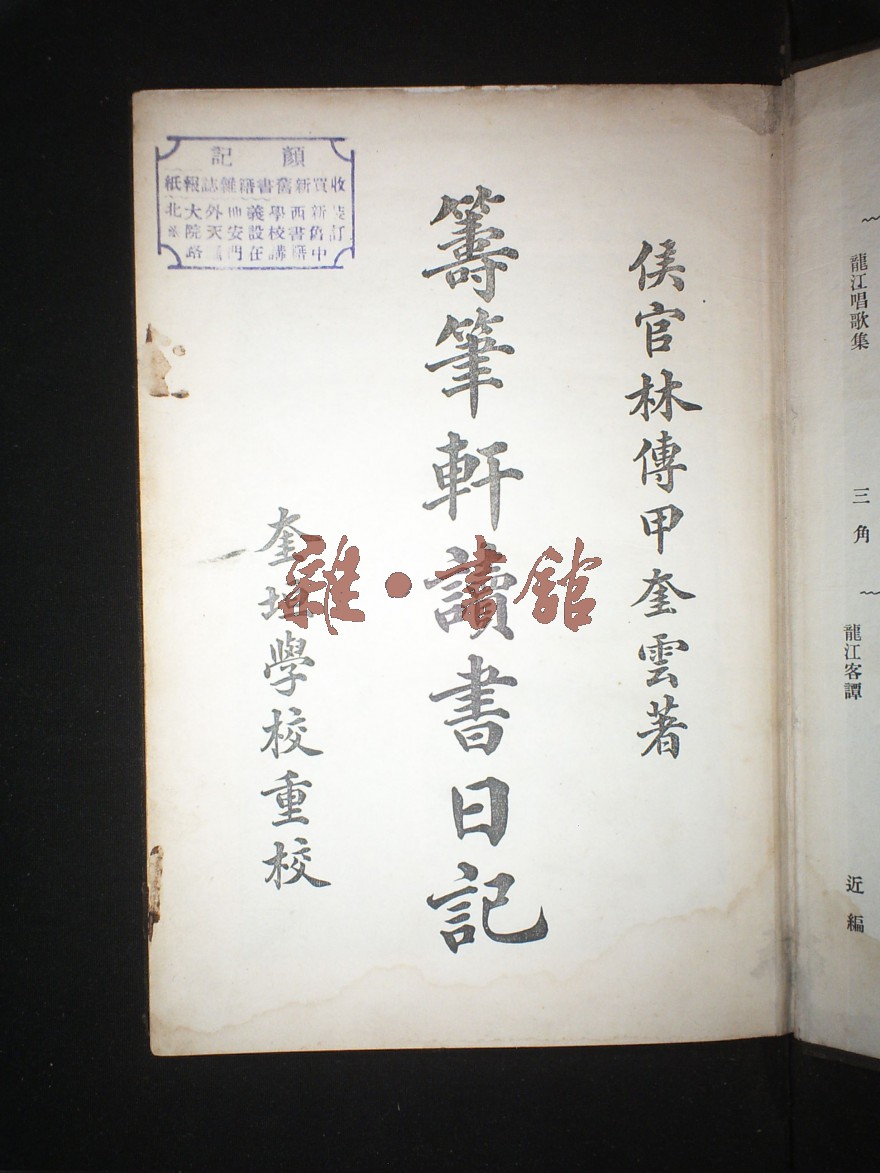 龍江唱歌集
三角
龍江客譚
近編
侯官林傳甲奎雲著
籌筆軒讀書日記
奎垣學校重校
顏記
收買新舊書籍雜誌報紙
訂
新舊中
西書籍
學校講
義設在
地安門
外天
大院路
北
雜·書館